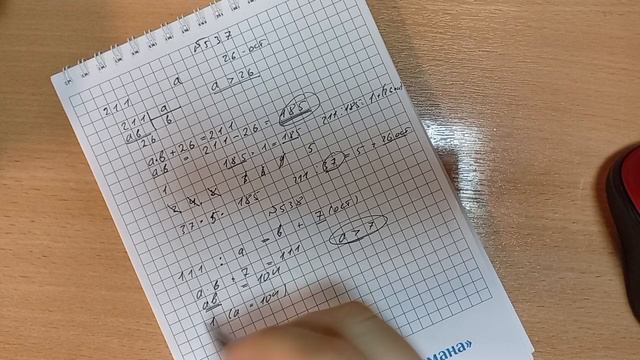 №537
211 a 26-ост
211 a a > 26
ab b
26
a·b + 26 = 211
ab = 211 - 26 = 185 211 : 185 = 1
185 : 1 = 185
1
37 · 5 = 185 211 : 37 = 5 + 26 ост
№538
111 : a = b + 7 (ост)
a·b + 7 = 111 a > 7
ab = 104
1 (a = 104)
мана»